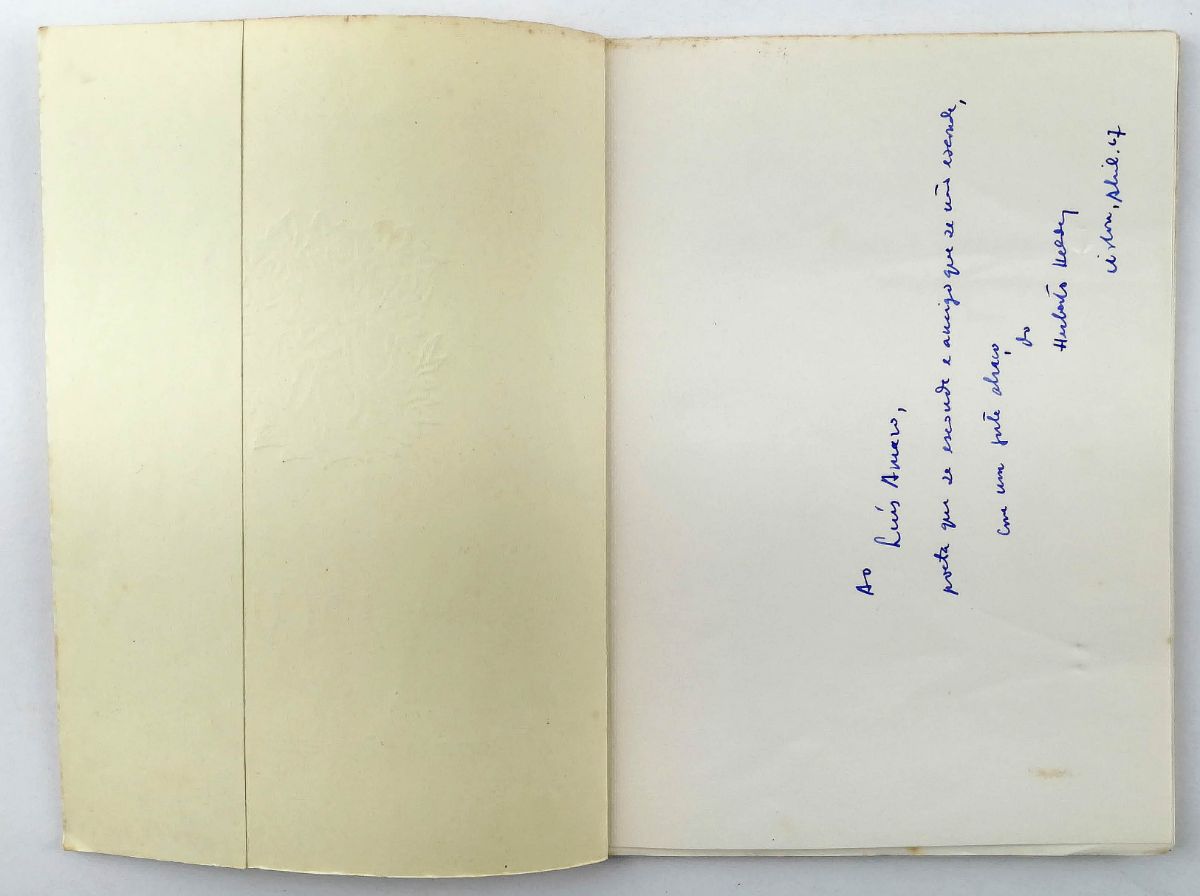 Ao
Luís Amaro,
poeta que se esconde e amigo que se não esconde,
com um forte abraço
do
Herberto Helder
Lisboa, Abril. 67